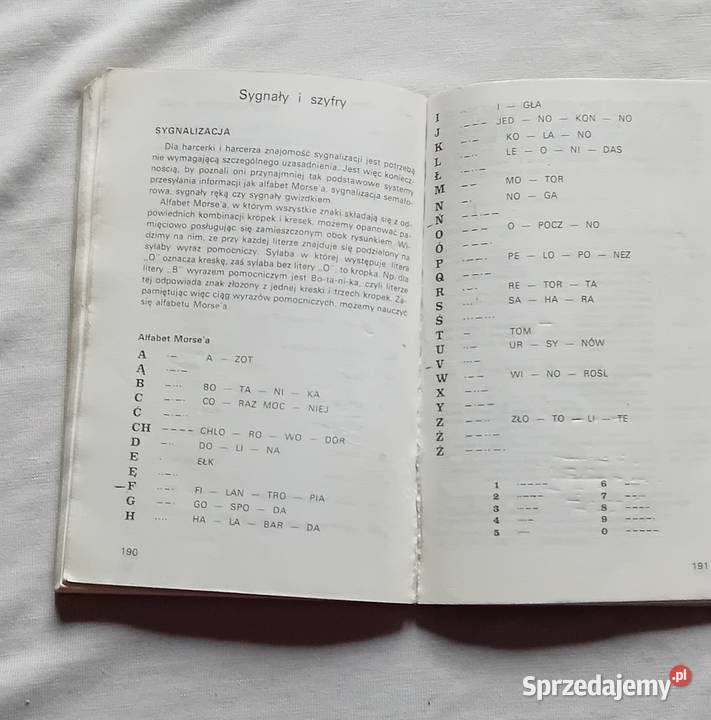 Sygnały i szyfry
SYGNALIZACJA
Dla harcerki i harcerza znajomość sygnalizacji jest potrzebą
nie wymagającą szczególnego uzasadnienia. Jest więc koniecz-
nością, by poznali oni przynajmniej tak podstawowe systemy
przesyłania informacji jak alfabet Morse'a, sygnalizacja semafo-
rowa, sygnały ręką czy sygnały gwizdkiem.
Alfabet Morse'a, w którym wszystkie znaki składają się z od-
powiednich kombinacji kropek i kresek, możemy opanować pa-
mięciowo posługując się zamieszczonym obok rysunkiem. Wi-
dzimy na nim, że przy każdej literze znajduje się podzielony na
sylaby wyraz pomocniczy. Sylaba w której występuje litera
„O" oznacza kreskę, zaś sylaba bez litery „O", to kropka. Np. dla
litery „B" wyrazem pomocniczym jest Bo-ta-ni-ka, czyli literze
tej odpowiada znak złożony z jednej kreski i trzech kropek. Za-
pamiętując więc ciąg wyrazów pomocniczych, możemy nauczyć
się alfabetu Morse'a.
Alfabet Morse'a
A ·– A — ZOT
Ą ·–·–
B –··· BO — TA — NI — KA
C –·–· CO — RAZ MOC — NIEJ
Ć
CH –––– CHLO — RO — WO — DÓR
D –·· DO — LI — NA
E · EŁK
Ę
F ··–· FI — LAN — TRO — PIA
G ––· GO — SPO — DA
H ···· HA — LA — BAR — DA
190
I ·· I — GŁA
J ·––– JED — NO — KON — NO
K –·– KO — LA — NO
L ·–·· LE — O — NI — DAS
Ł
M –– MO — TOR
N –· NO — GA
Ń
O ––– O — POCZ — NO
Ó
P ·––· PE — LO — PO — NEZ
Q
R ·–· RE — TOR — TA
S ··· SA — HA — RA
Ś
T – TOM
U ··– UR — SY — NÓW
V
W ·–– WI — NO — ROŚL
X
Y
Z ––·· ZŁO — TO — LI — TE
Ż
Ź
1 ·–––– 6 –····
2 ··––– 7 ––···
3 ···–– 8 –––··
4 ····– 9 ––––·
5 ····· 0 –––––
191
Sprzedajemy.pl